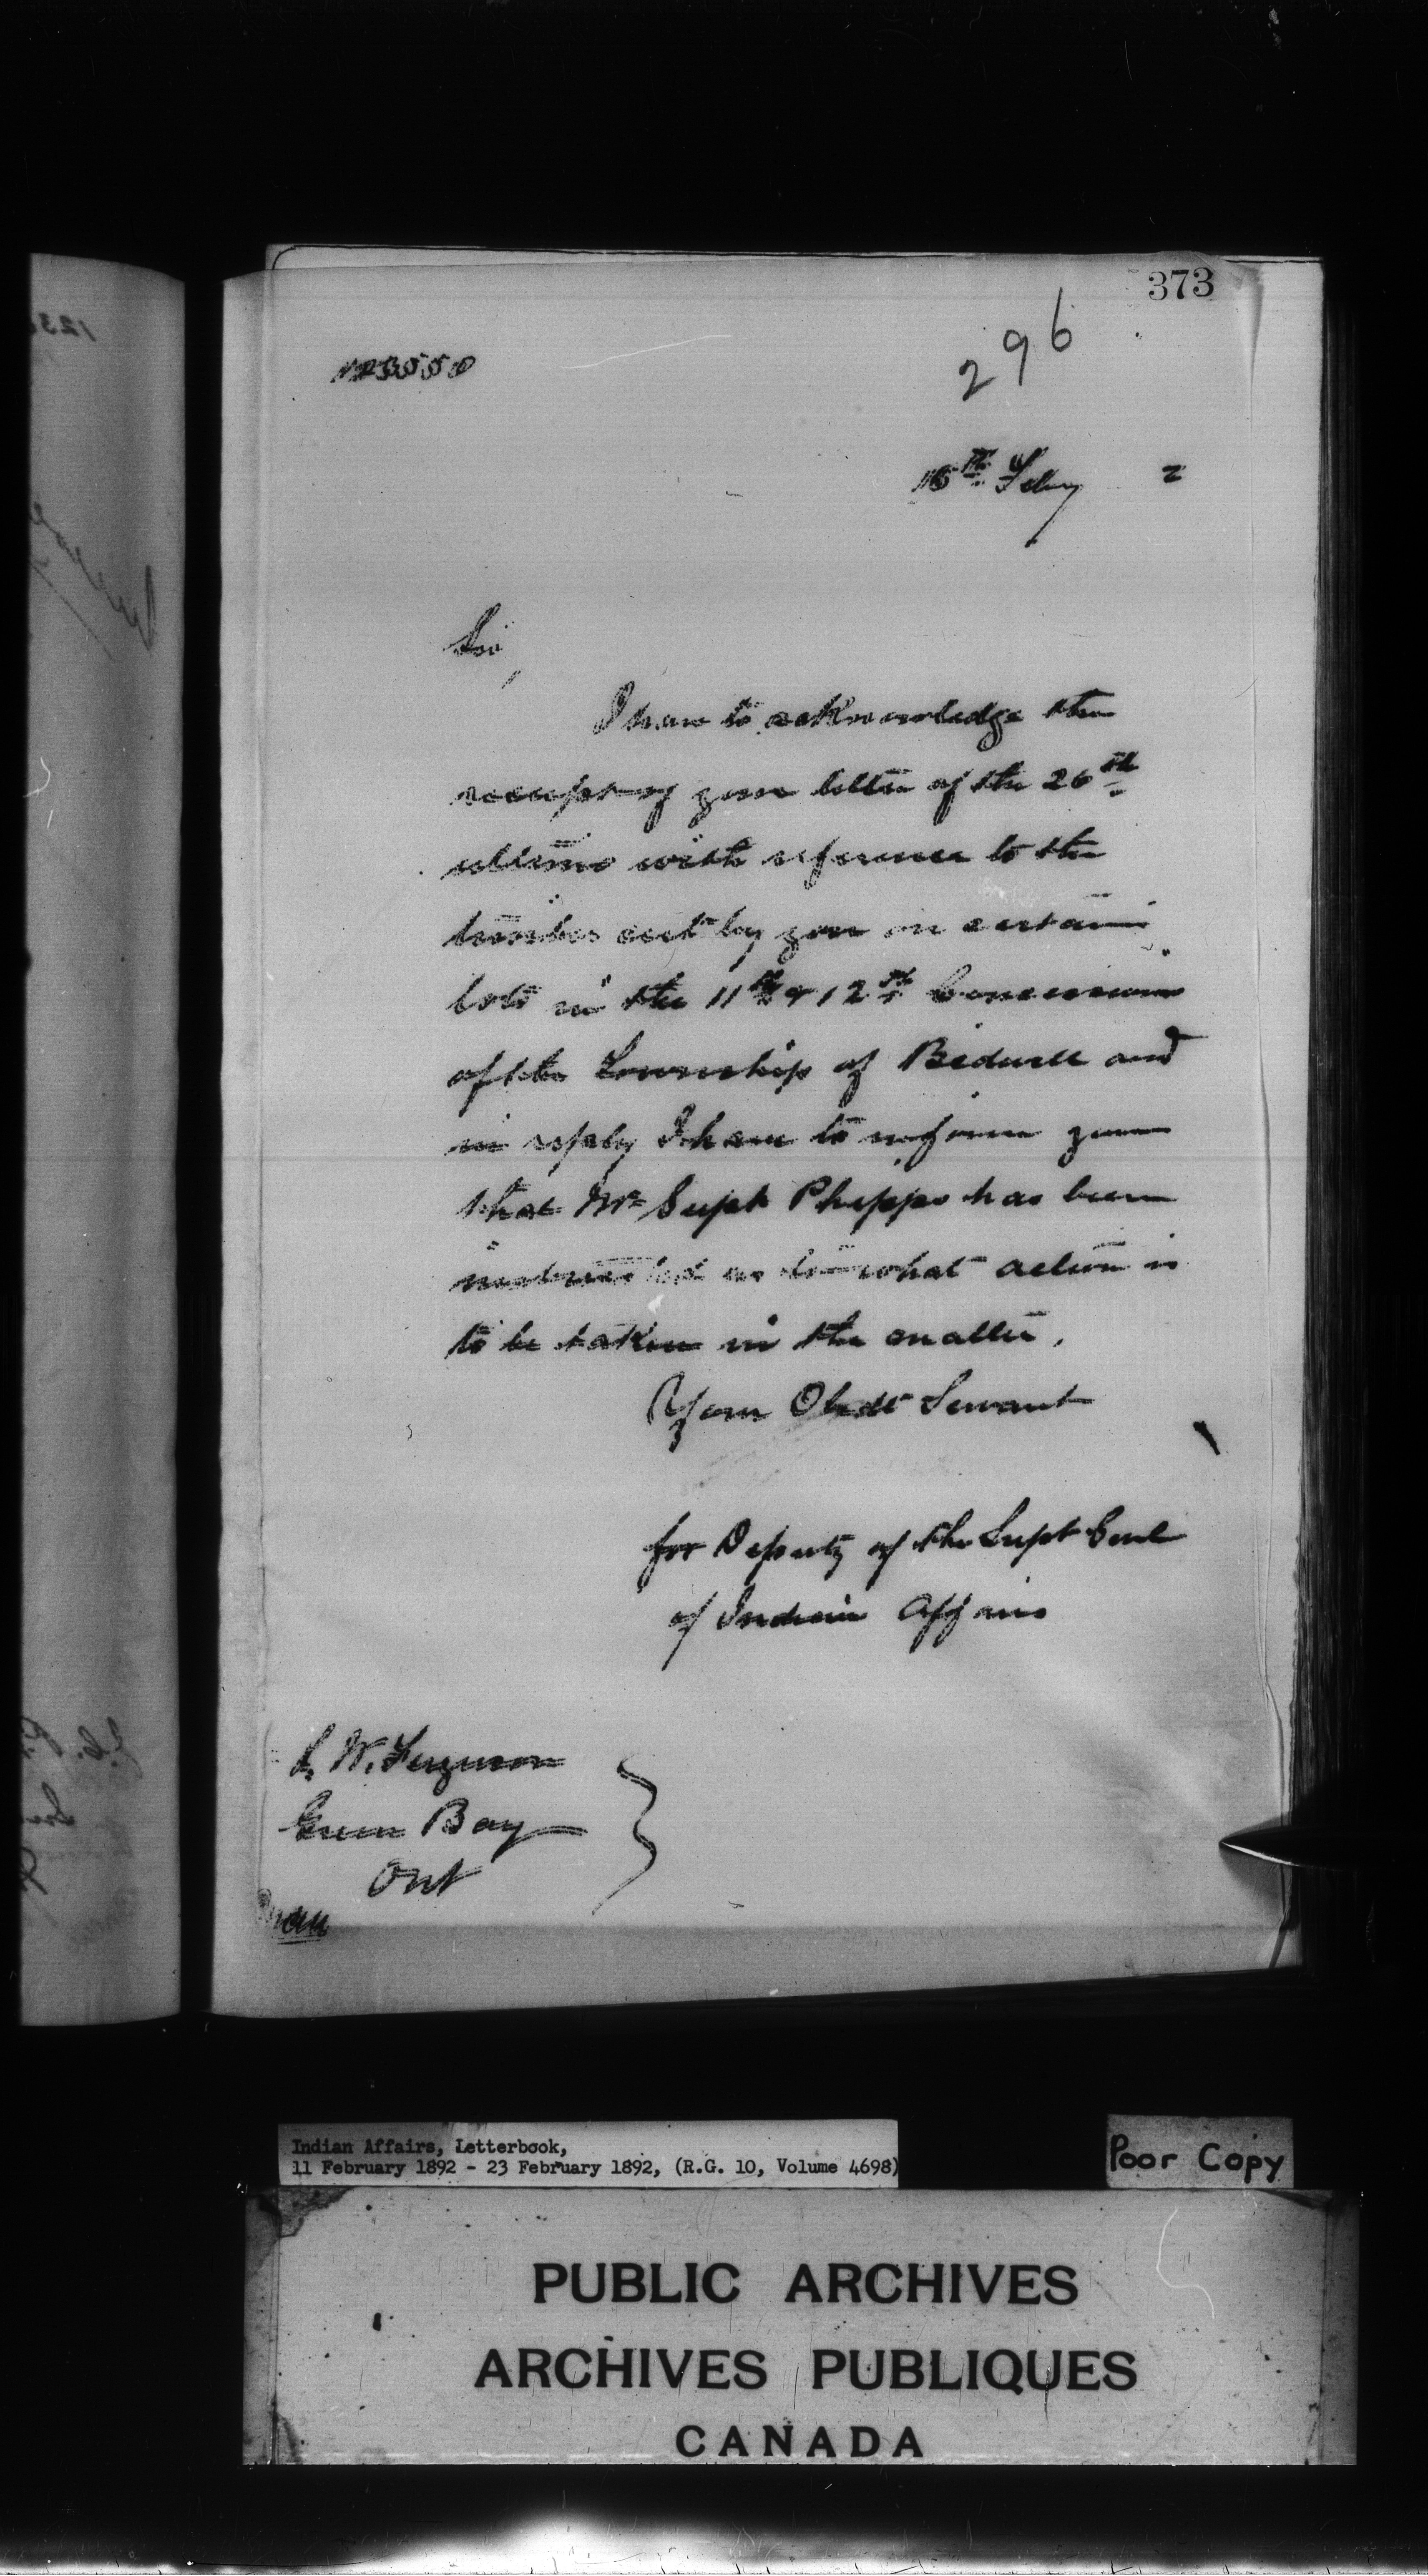 373
296
123550
16th Feby 2
Sir,
I have to acknowledge the
receipt of your letter of the 26th
ultimo with reference to the
timber cut by you on certain
lots in the 11th & 12th Concessions
of the Township of Bidwell and
in reply I have to inform you
that Mr Supt Phipps has been
instructed as to what action is
to be taken in the matter.
Your Obedt Servant
for Deputy of the Supt Genl
of Indian Affairs
W. Ferguson
Green Bay
Ont
Indian Affairs, Letterbook,
11 February 1892 - 23 February 1892, (R.G. 10, Volume 4698)
Poor Copy
PUBLIC ARCHIVES
ARCHIVES PUBLIQUES
CANADA